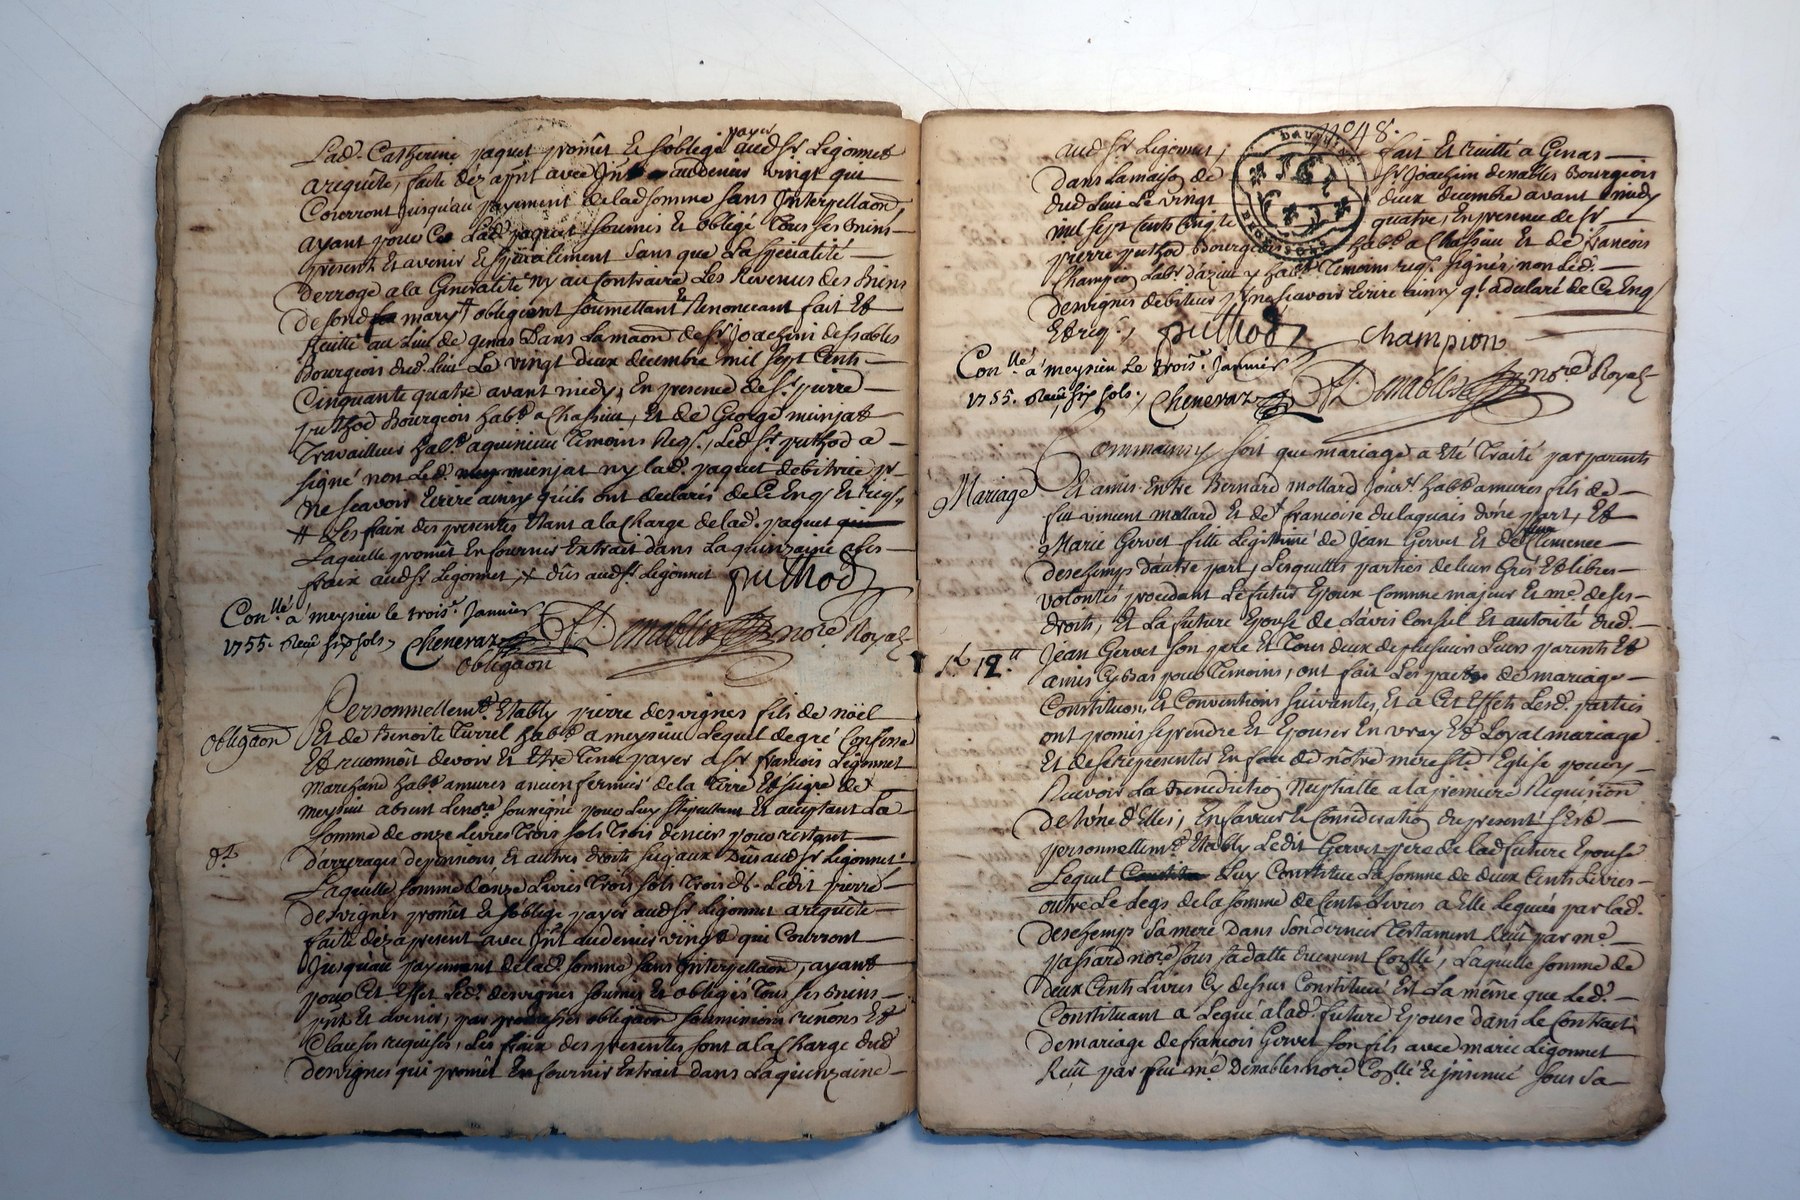 Lad. Catherine paquet promêt Et s'oblige payer aud sr. Ligonnet
a requête, faite déz aprnt avec Jnt au denier vingt qui
Courront Jusqu'au payement delad somme sans Jnterpellaon,
ayant pour Ce Lad. paquet soumis Et obligé Tous ses Biens
present Et avenir Et spécialiment sans que La spécialité
derroge a la Generalité ny au Contraire Les Revenus des Biens
de fond mary # obligeant soumettant Et Renonceant fait Et
recitté au Lieu de genas Dans Lamaon de sr. Joachim desnables
Bourgeois dud. lieu Le vingt deux decembre mil sept Cents
Cinquante quatre avant midy, En presence de sr. pierre
puthod Bourgeois habt. a Chassieu, Et de George minjat
Travailleur habt. a quinieu Temoins Req., Led. sr. puthod a
signé non Led. mienjat ny lad. paquet debitrice pr
ne scavoir Ecrire ainsy qu'ils ont declarés de Ce Enq. Et req.,
# Les fraix des presentes Etant a la Charge delad. paquet
Laquelle promêt En fournir Extrait dans La quinzaine
fraix aud sr Ligonnet, # dûs aud sr. Ligonnet puthod
Conllé. a meysieu le trois. Janvier
1755. Reçu six sols, Cheneraz Desnables nore. Royal
obligaon
Personnellemt. Etably pierre desvignes fils de noël
obligaon Et de Benoite Turrel habt. a meysieu Lequel de gré Confesse
Et reconnoît devoir Et Etre Tenu payer a sr francois Ligonnet
Marchand habt. amures ancien fermier de la Terre Et seigre. de
meysieu absent Le nore. soussigné pour Luy stipullant Et acceptant La
somme de onze Livres Trois sols Trois deniers pour restant
dt. D'arrerages de pensions Et autres droits seigaux Dûs aud sr Ligonnet
Laquelle somme d'onze Livres Trois sols Trois ds. Ledit pierre
desvignes promêt Et s'oblige payer aud sr Ligonnet a requête
faite déz a present avec Jnt au denier vingt qui Courront
Jusqu'au payement delad. somme sans Jnterpellaon, ayant
pour Cet Effet Led. desvignes soumis Et obligés Tous ses Biens
prnt Et avenir, par obligaon soumissions renons Et
Clauses requises, Les fraix des presentes sont a la Charge dud.
desvignes qui promêt En fournir Extrait dans La quinzaine
no 48.
aud sr Ligonnet, fait Et recitté a Genas
Dans La maison de sr Joachim desnables Bourgeois
dud. Lieu Le vingt deux decembre avant midy
mil sept Cents Cinqte quatre, En presence de sr
pierre puthod Bourgeois habt. a Chassieu Et de francois
Champion Labr. habt. Temoins req. signés, non Led.
desvignes debiteur pr ne scavoir Ecrire ainsy qu. a declaré de Ce Enq.
Et req., puthod Champion
Conllé. a meysieu Le trois. Janvier
1755. Reçu six sols, Cheneraz Desnables nore. Royal
Comm ainsy soit que mariage a Eté Traité par parents
Mariage Et amis Entre Bernard mollard Jour. habt amures fils de
feu vincent mollard Et de francoise dulaquais d'une part, Et
Marie Gervet fille Legitime de Jean Gervet Et de feue Clemence
deschamps d'autre part, Lesquelles parties de leur Grés Et libres
volontés procedant Le futur Epoux Comme majeur Et me. de ses
droits, Et La future Epouse de L'avis Conseil Et autorité dud.
Jean Gervet son pere Et Tous deux de plusieurs Leurs parents Et
1L 12s amis Cy bas pour Temoins, ont fait Les pactes de mariage
Constitution. Et Conventions suivantes, Et a Cet Effets Lesd. parties
ont promis se prendre Et Epouser En vray Et Loyal mariage
Et de se representer En face de nôtre mere ste. Eglise pour y
Recevoir La Benediction Nuptialle a la premiere Requision
de L'une d'Elles, En faveur Et Consideration du present s'est
personnellemt. Etably Ledit Gervet pere de lad future Epouse
Lequel Luy Constitue La somme de deux Cents Livres
outre Le Legs de la somme de Cents Livres a Elle Leguée par lad.
deschamps sa mere Dans son dernier Testament Reçu par me.
passard nore. sous sa datte duement Conllé, Laquelle somme de
deux Cents Livres Cy dessus Constituée Est La même que Led.
Constituant a Legué a lad. future Epouse dans Le Contrat
de mariage de francois Gervet son fils avec marie Ligonnet
Reçu par feu me. Desnables nore. Conllé Et jnsinué sous sa